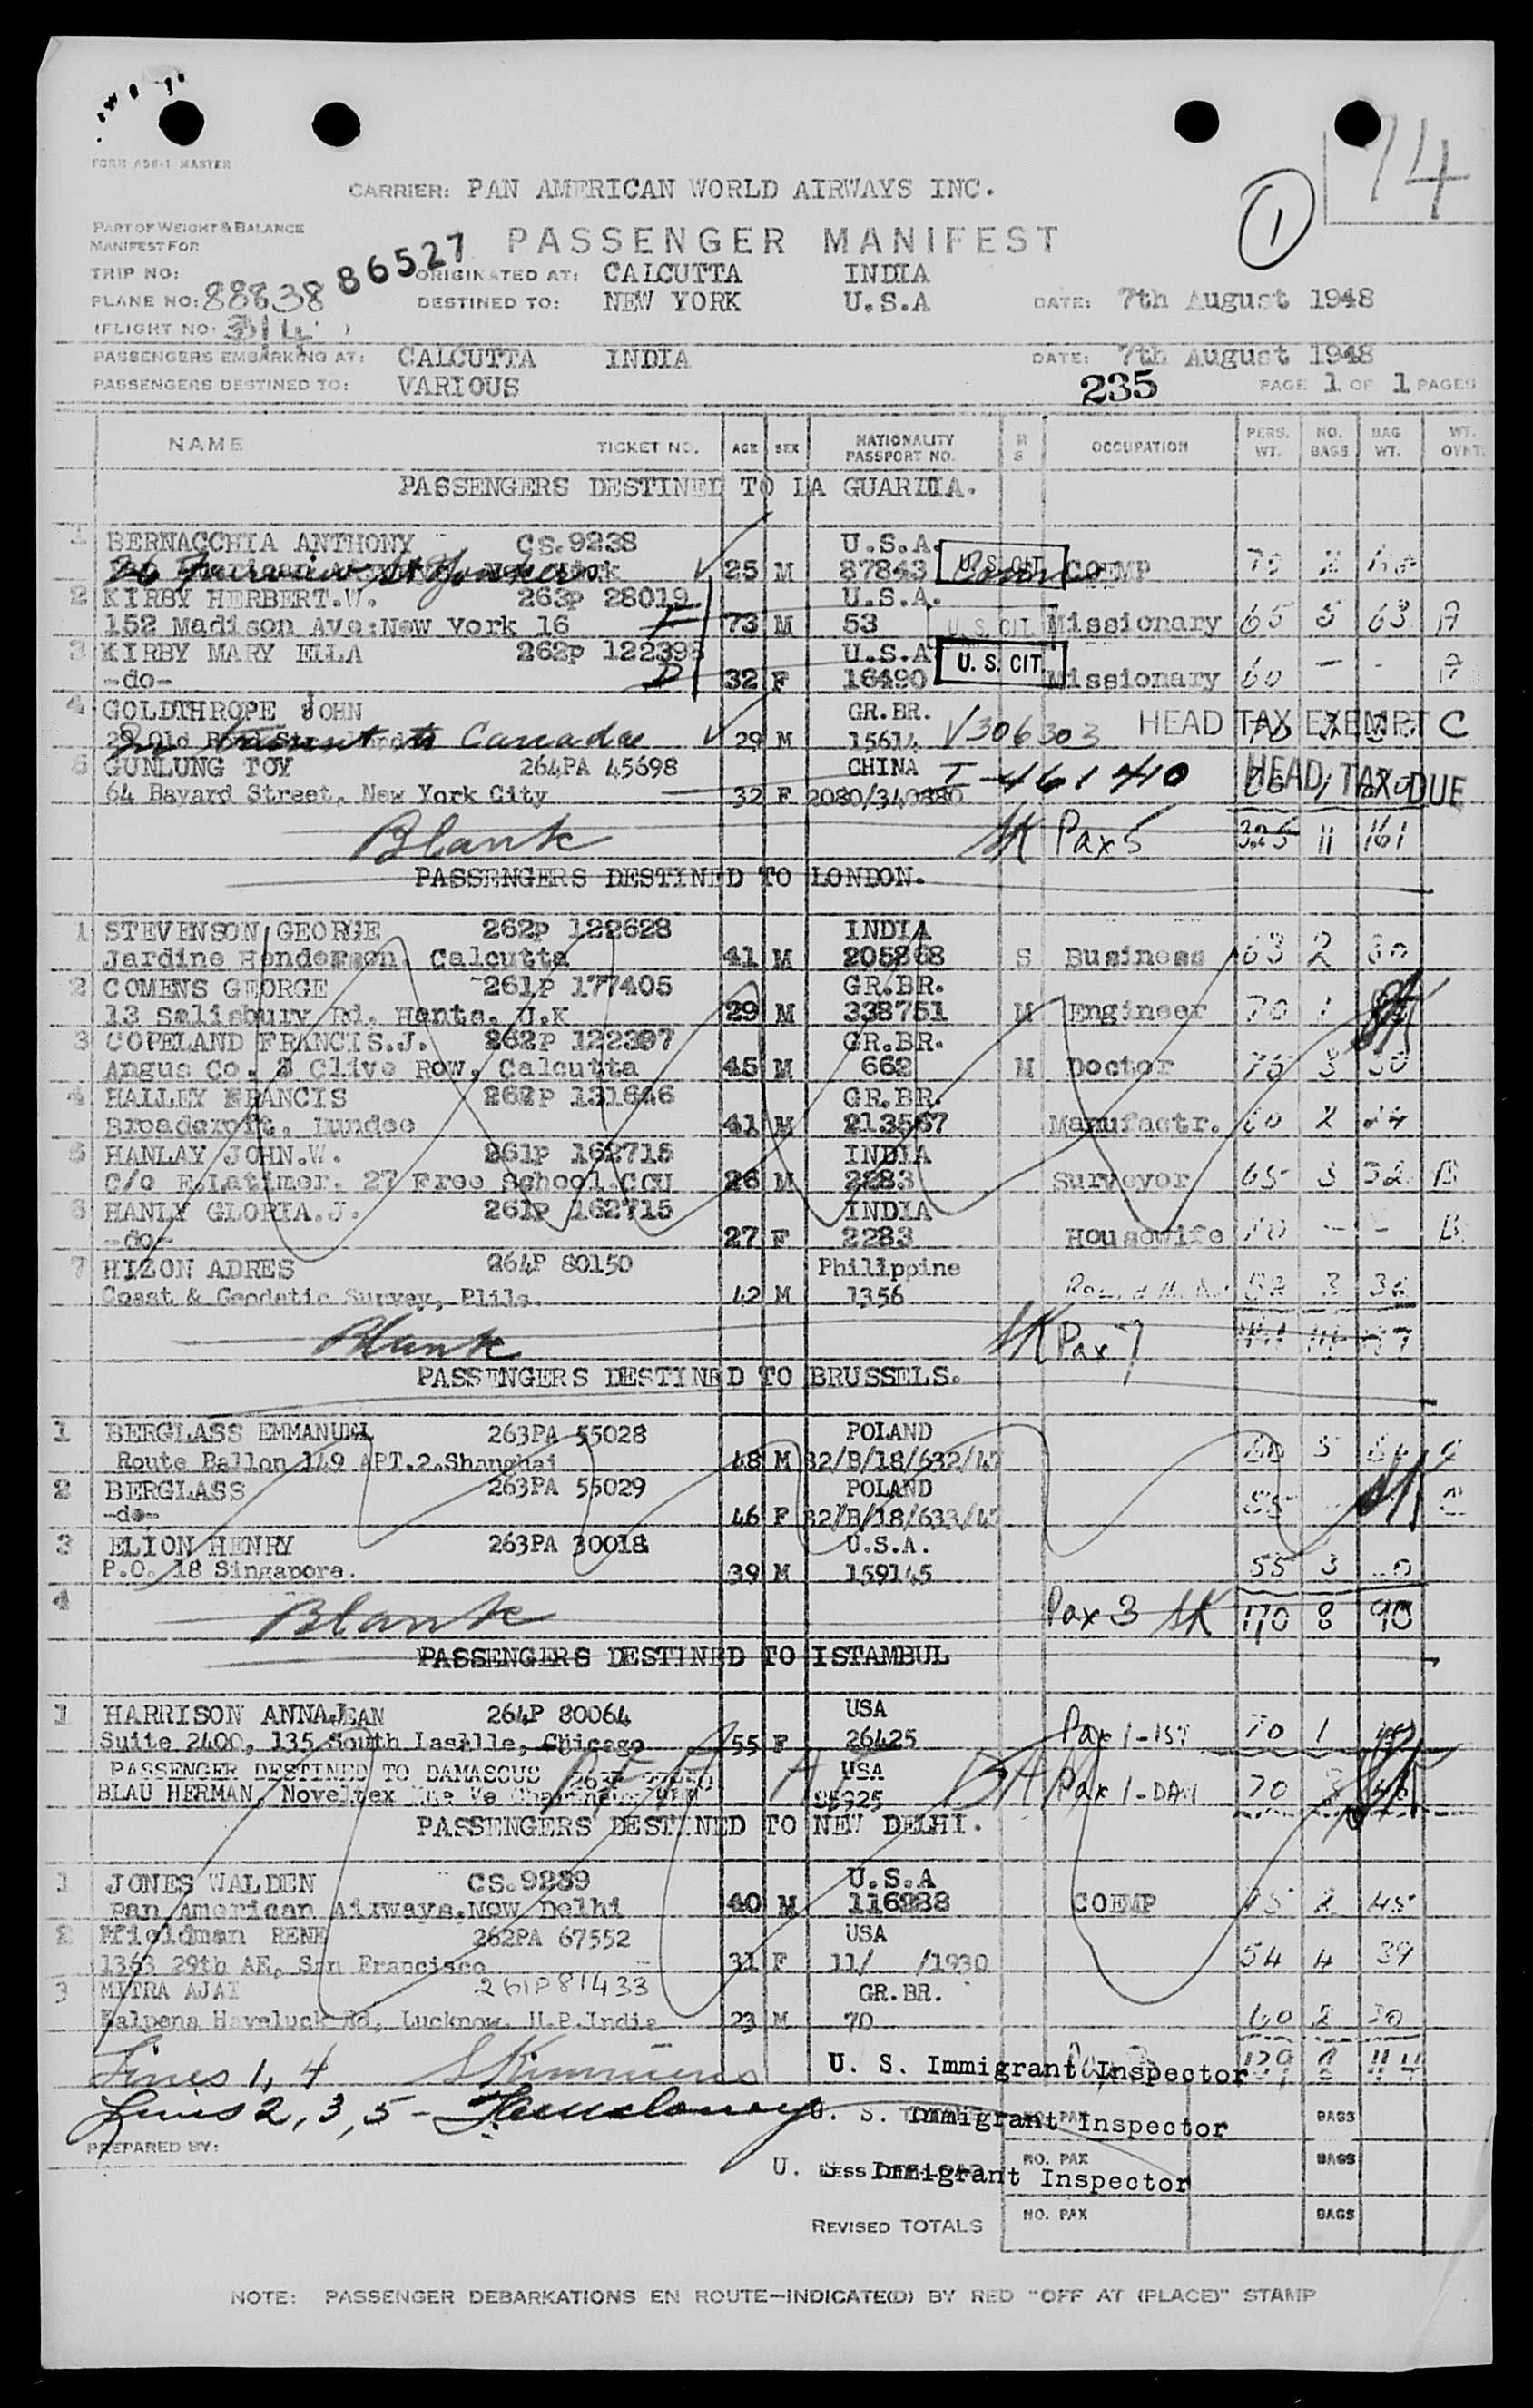 74
1
FORM 456-1 MASTER
CARRIER: PAN AMERICAN WORLD AIRWAYS INC.
PART OF WEIGHT & BALANCE
MANIFEST FOR
PASSENGER MANIFEST
TRIP NO: 86527 ORIGINATED AT: CALCUTTA INDIA
PLANE NO: 88838 DESTINED TO: NEW YORK U.S.A DATE: 7th August 1948
(FLIGHT NO. 314 )
PASSENGERS EMBARKING AT: CALCUTTA INDIA DATE: 7th August 1948
PASSENGERS DESTINED TO: VARIOUS 235 PAGE 1 OF 1 PAGES
NAME TICKET NO. AGE SEX NATIONALITY PASSPORT NO. M S OCCUPATION PERS. WT. NO. BAGS BAG WT. WT. OVNT.
PASSENGERS DESTINED TO LA GUARDIA.
1 BERNACCHIA ANTHONY CS.9238 U.S.A.
26 Fairview St Yonkers 25 M 87843 U.S. CIT. COEMP 70
2 KIRBY HERBERT.W. 263P 28019 U.S.A.
152 Madison Ave:New York 16 73 M 53 U.S. CIT. Missionary 65 5 63 A
3 KIRBY MARY ELLA 262P 122398 U.S.A
-do- 32 F 16490 U.S. CIT. Missionary 60 - - A
4 GOLDTHROPE JOHN GR.BR. HEAD TAX EXEMPT C
In transit to Canada 29 M 15614 V306303
5 GUNLUNG TOY 264PA 45698 CHINA T-461410 HEAD TAX DUE
64 Bayard Street, New York City 32 F 2080/340880
Blank SK Pax 5 11 161
PASSENGERS DESTINED TO LONDON.
1 STEVENSON GEORGE 262P 122628 INDIA
Jardine Henderson. Calcutta 41 M 205868 S Business 63 2 30
2 COMENS GEORGE 261P 177405 GR.BR.
13 Salisbury Rd. Hants. U.K 29 M 338751 M Engineer 70 1
3 COPELAND FRANCIS.J. 262P 122397 GR.BR.
Angus Co. 3 Clive Row, Calcutta 45 M 662 M Doctor 75 3 30
4 HALLEY FRANCIS 262P 131646 GR.BR.
Broadcroft. Dundee 41 M 213567 Manufactr. 60 2 24
5 HANLAY JOHN.W. 261P 162715 INDIA
C/o E.Latimer. 27 Free School.CCU 26 M 2283 Surveyor 65 3 32 B
6 HANLY GLORIA.J. 261P 162715 INDIA
-do- 27 F 2283 Housewife 70 - - B
7 HIZON ADRES 264P 80150 Philippine
Coast & Geodetic Survey, Plils. 42 M 1356 3
Blank SK Pax 7
PASSENGERS DESTINED TO BRUSSELS.
1 BERGLASS EMMANUEL 263PA 55028 POLAND
Route Ballon 149 APT.2.Shanghai 48 M 32/B/18/632/47 5 C
2 BERGLASS 263PA 55029 POLAND
-do- 46 F 32/B/18/633/47 55 - C
3 ELION HENRY 263PA 30018 U.S.A.
P.O. 18 Singapore. 39 M 159145 55 3
4 Blank Pax 3 SK 170 8 90
PASSENGERS DESTINED TO ISTAMBUL
1 HARRISON ANNA JEAN 264P 80064 USA
Suite 2400, 135 South Lasalle, Chicago 55 F 26425 Pax 1-IST 70 1
PASSENGER DESTINED TO DAMASCUS USA
BLAU HERMAN, Noveltex Pax 1-DAM 70
PASSENGERS DESTINED TO NEW DELHI.
1 JONES WALDEN CS.9239 U.S.A
Pan American Airways.New Delhi 40 M 116238 COEMP 2 45
2 RENE 262PA 67552 USA
1363 29th AE, San Francisco 31 F 11/ /1930 54 4 39
3 MITRA AJAI 261P81433 GR.BR.
Kalpena Haveluck Rd, Lucknow. U.P.India 23 M 70 60 2 30
Lines 1, 4 SKimmens U. S. Immigrant Inspector 8 114
Lines 2, 3, 5 - U. S. Immigrant Inspector NO. PAX BAGS
PREPARED BY: U. S. Immigrant Inspector NO. PAX BAGS
REVISED TOTALS NO. PAX BAGS
NOTE: PASSENGER DEBARKATIONS EN ROUTE—INDICATE(D) BY RED "OFF AT (PLACE)" STAMP